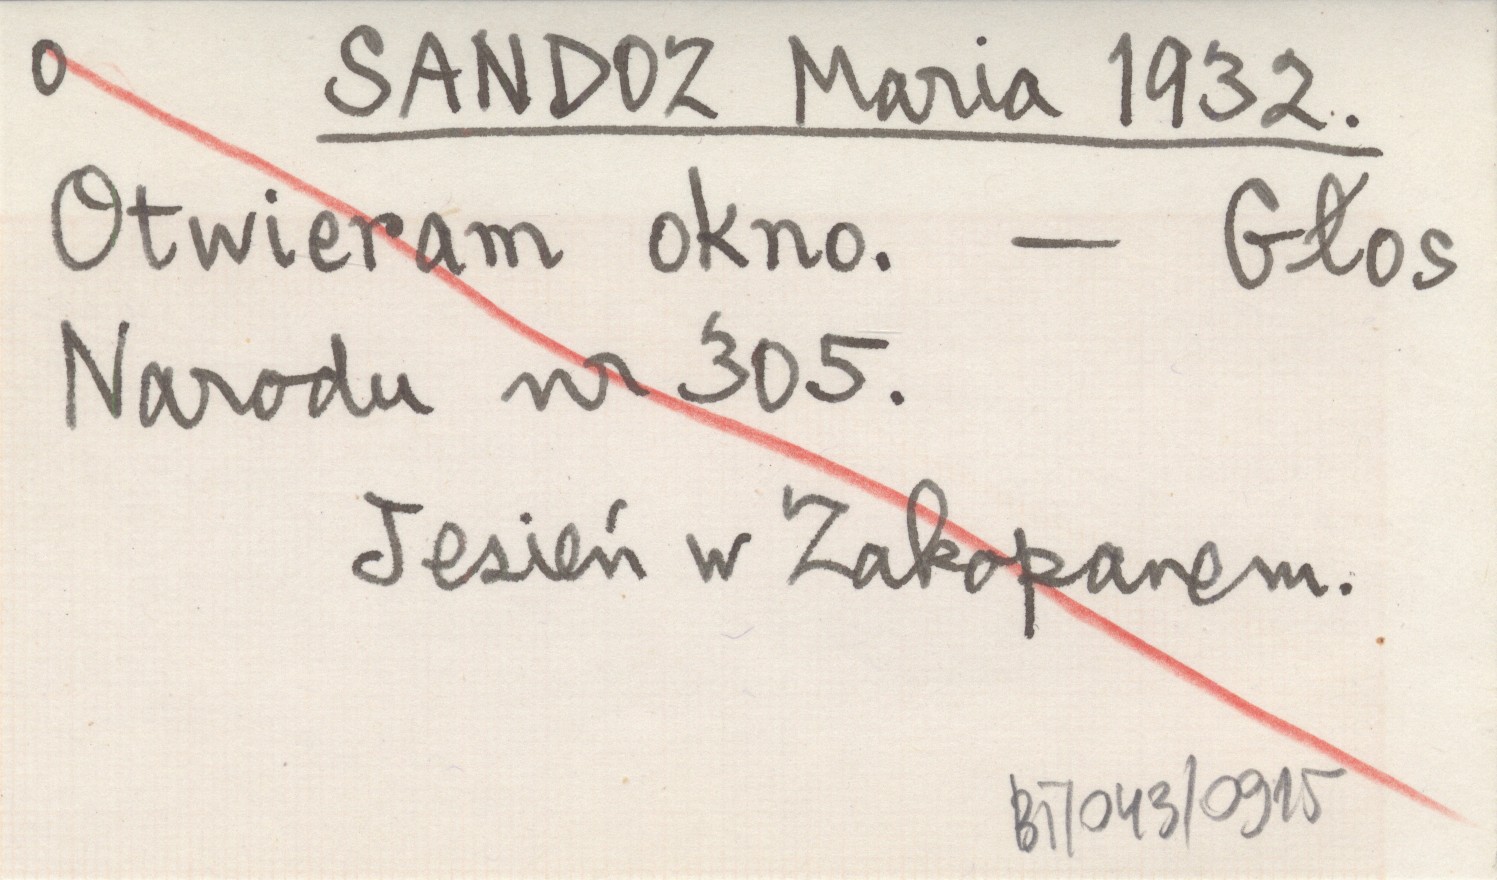 o SANDOZ Maria 1932.
Otwieram okno. — Głos
Narodu nr 305.
Jesień w Zakopanem.
BT/043/0915